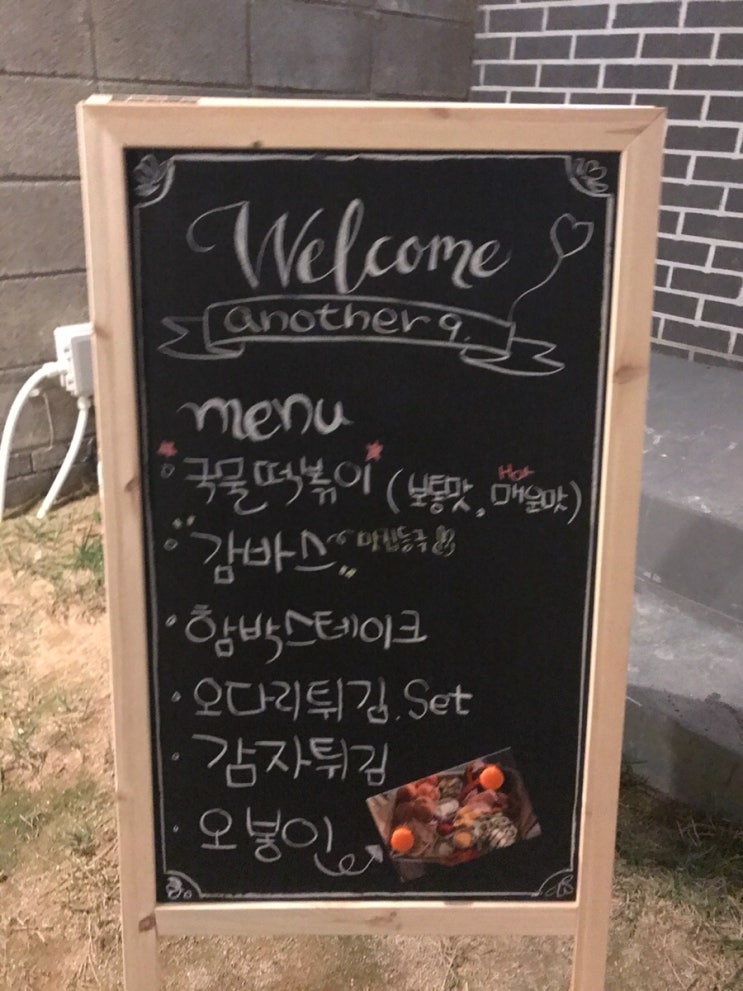 Welcome
another 9.
menu
국물떡볶이 (보통맛, Hot 매운맛)
감바스 맛집등극
함박스테이크
오다리튀김.Set
감자튀김
오봉이